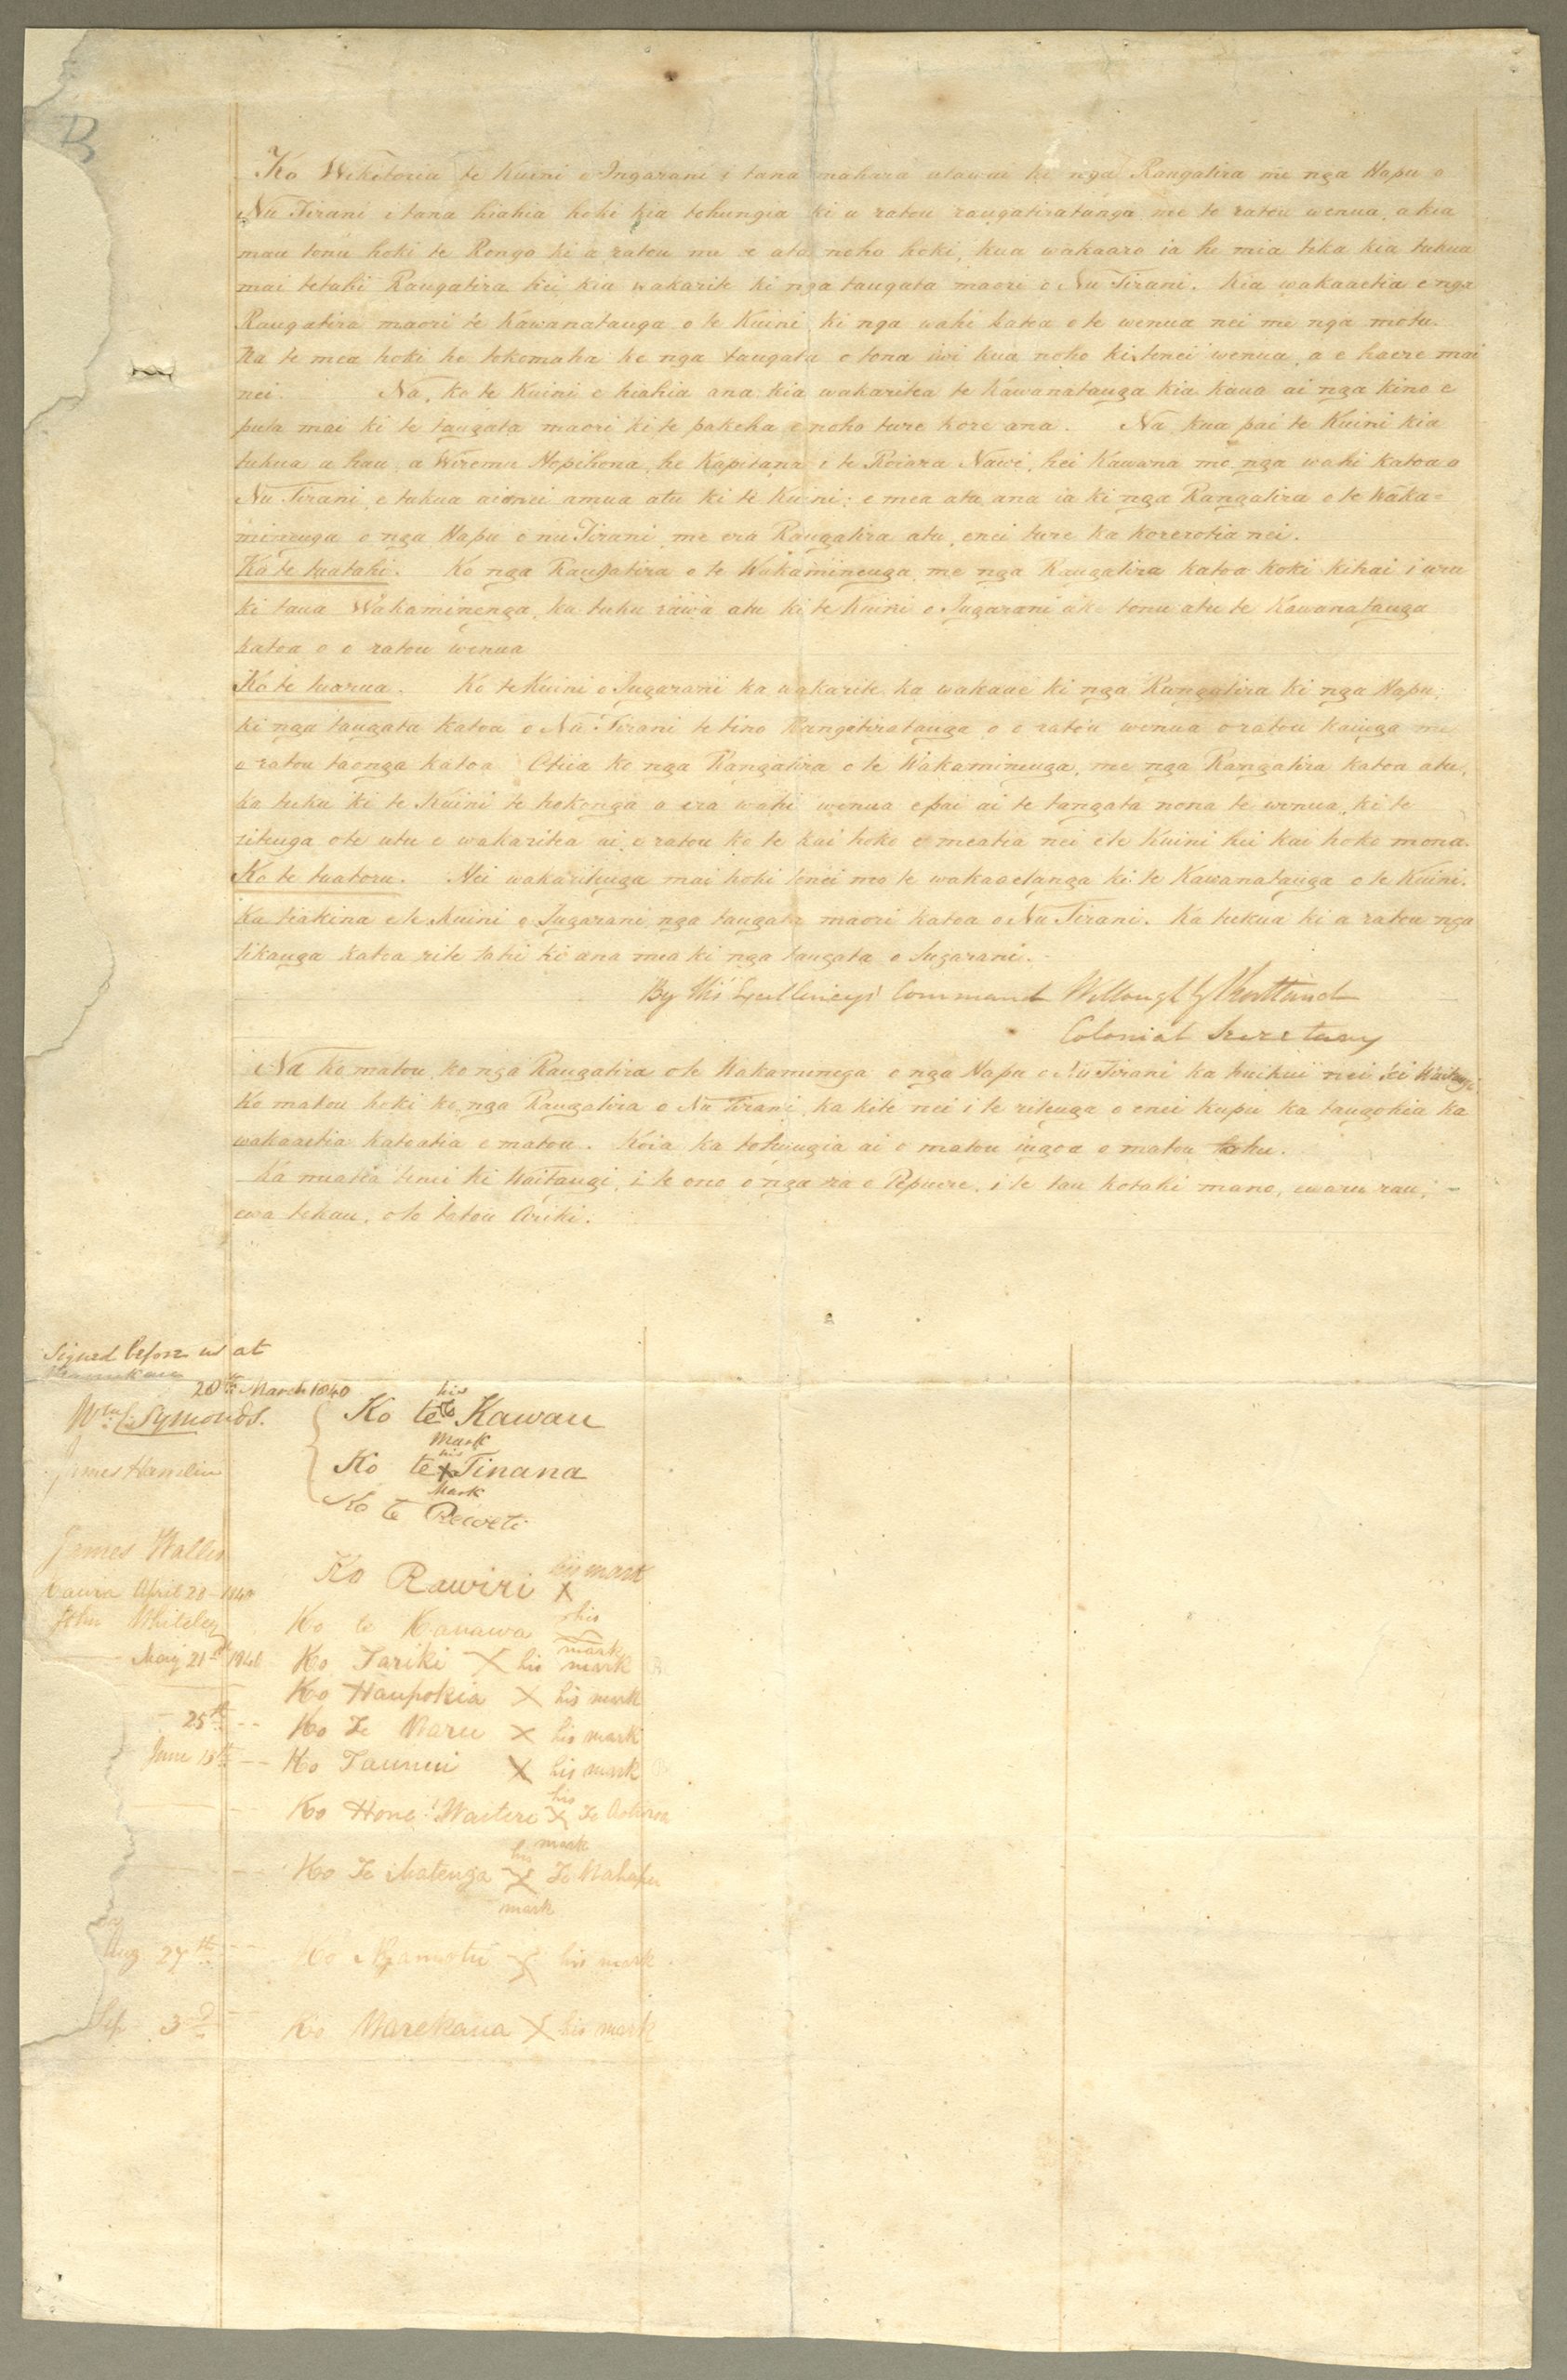 B
Ko Wikitoria te Kuini o Ingarani i tana mahara atawai ki nga Rangatira me nga Hapu o
Nu Tirani i tana hiahia hoki kia tohungia ki a ratou rangatiratanga me te ratou wenua, a kia
mau tonu hoki te Rongo ki a ratou me te ata noho hoki, kua wakaaro ia he mia tika kia tukua
mai tetahi Rangatira hei kia wakarite ki nga tangata maori o Nu Tirani. Kia wakaaetia e nga
Rangatira maori te Kawanatanga o te Kuini, ki nga wahi katoa o te wenua nei me nga motu.
Na te mea hoki he tokomaha ke nga tangata o tona iwi kua noho ki tenei wenua, a e haere mai
nei. Na, ko te Kuini e hiahia ana kia wakaritea te Kawanatanga kia kaua ai nga kino e
puta mai ki te tangata maori ki te pakeha e noho ture kore ana. Na kua pai te Kuini kia
tukua a hau, a Wiremu Hopihona, he Kapitana i te Roiara Nawi, hei Kawana mo nga wahi katoa o
Nu Tirani, e tukua aianei amua atu ki te Kuini; e mea atu ana ia ki nga Rangatira o te Waka=
minenga o nga Hapu o nu Tirani, me era Rangatira atu, enei ture ka korerotia nei.
Ko te tuatahi. Ko nga Rangatira o te Wakaminenga, me nga Rangatira katoa hoki kihai i uru
ki taua Wakaminenga, ka tuku rawa atu ki te Kuini o Ingarani ake tonu atu te Kawanatanga
katoa o o ratou wenua
Ko te tuarua. Ko te Kuini o Ingarani ka wakarite ka wakaae ki nga Rangatira ki nga Hapu,
ki nga tangata katoa o Nu Tirani te tino Rangatiratanga o o ratou wenua o ratou kainga me
o ratou taonga katoa Otiia ko nga Rangatira o te Wakaminenga, me nga Rangatira katoa atu,
ka tuku ki te Kuini te hokonga o era wahi wenua e pai ai te tangata nona te wenua, ki te
ritenga o te utu e wakaritea ai e ratou ko te kai hoko e meatia nei e te Kuini hei kai hoko mona.
Ko te tuatoru. Hei wakaritenga mai hoki tenei mo te wakaaetanga ki te Kawanatanga o te Kuini.
Ka tiakina e te Kuini o Ingarani nga tangata maori katoa o Nu Tirani. Ka tukua ki a ratou nga
tikanga katoa rite tahi ki ana mea ki nga tangata o Ingarani.
By His Excellency's Command Willoughby Shortland
Colonial Secretary
Na ko matou, ko nga Rangatira o te Wakaminenga o nga Hapu o Nu Tirani ka huihui nei ki Waitangi
Ko matou hoki ko nga Rangatira o Nu Tirani, ka kite nei i te ritenga o enei kupu ka tangohia ka
wakaaetia katoatia e matou. Koia ka tohungia ai o matou ingoa o matou tohu.
Ka meatia tenei ki Waitangi, i te ono o nga ra o Pepuere, i te tau kotahi mano, ewaru rau,
ewa tekau, o to tatou Ariki.
Signed before us at
Manukau
20th March 1840
Wm C. Symonds. Ko te Kawau his mark
James Hamlin Ko te Tinana his x mark
Ko Te Reweti
James Wallis Ko Rawiri x his mark
Kawia April 28 - 1840
John Whiteley Ko te Kanawa his mark
May 21st 1840 Ko Tariki X his mark
Ko Haupokia X his mark
25th Ko Te Waru X his mark
June 15th Ko Taunui X his mark
Ko Hone Waitere his X mark Te Aotearoa
Ko Te Matenga his X mark Te Wahapu
Aug 27th Ko Ngamotu X his mark
Sep 3rd Ko Warekaua X his mark